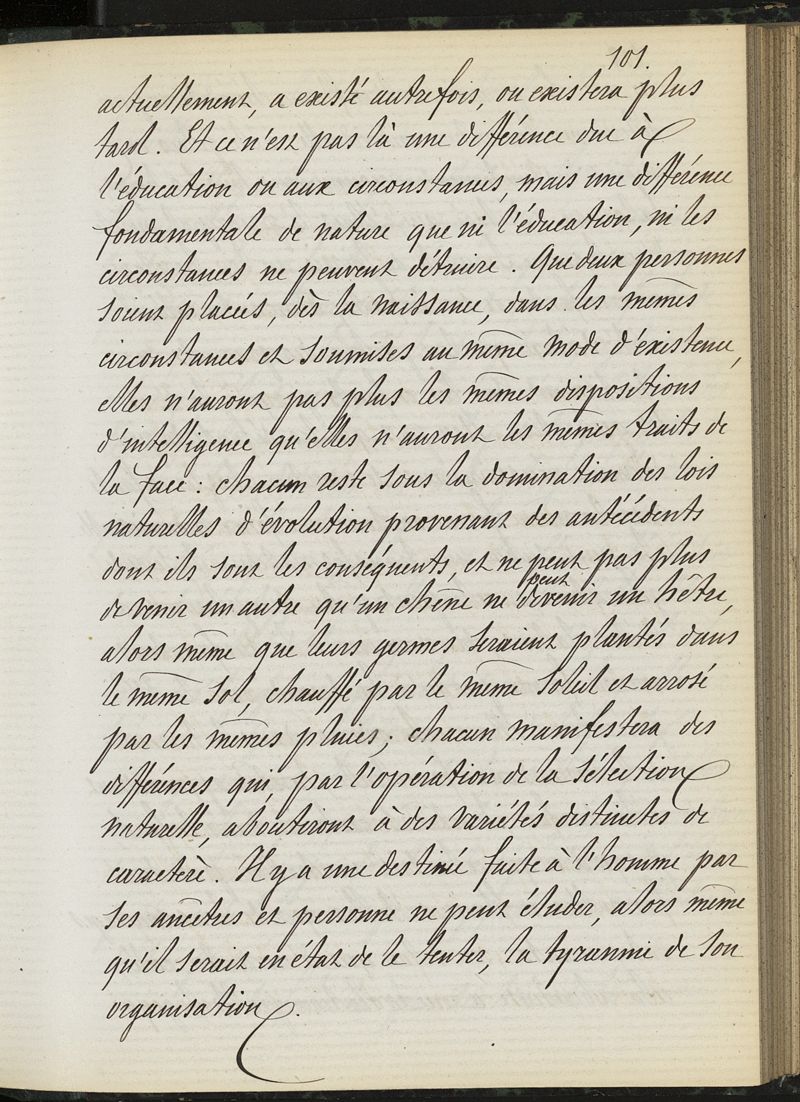 101.
actuellement, a existé autrefois, ou existera plus
tard. Et ce n'est pas là une différence due à
l'éducation ou aux circonstances, mais une différence
fondamentale de nature que ni l'éducation, ni les
circonstances ne peuvent détruire. Que deux personnes
soient placées, dès la naissance, dans les mêmes
circonstances et soumises au même mode d'existence,
elles n'auront pas plus les mêmes dispositions
d'intelligence qu'elles n'auront les mêmes traits de
la face : chacun reste sous la domination des lois
naturelles d'évolution provenant des antécédents
dont ils sont les conséquents, et ne peut pas plus
devenir un autre qu'un chêne ne peut devenir un hêtre,
alors même que leurs germes seraient plantés dans
le même sol, chauffé par le même soleil et arrosé
par les mêmes pluies ; chacun manifestera des
différences qui, par l'opération de la sélection
naturelle, aboutiront à des variétés distinctes de
caractère. Il y a une destinée faite à l'homme par
ses ancêtres et personne ne peut éluder, alors même
qu'il serait en état de le tenter, la tyrannie de son
organisation.